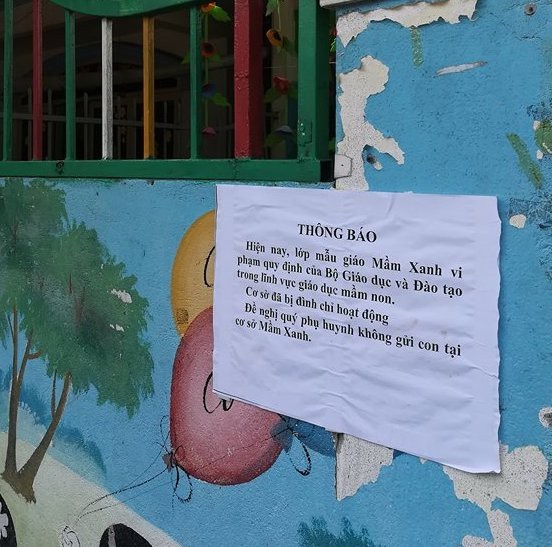 THÔNG BÁO
Hiện nay, lớp mẫu giáo Mầm Xanh vi
phạm quy định của Bộ Giáo dục và Đào tạo
trong lĩnh vực giáo dục mầm non.
Cơ sở đã bị đình chỉ hoạt động
Đề nghị quý phụ huynh không gửi con tại
cơ sở Mầm Xanh.